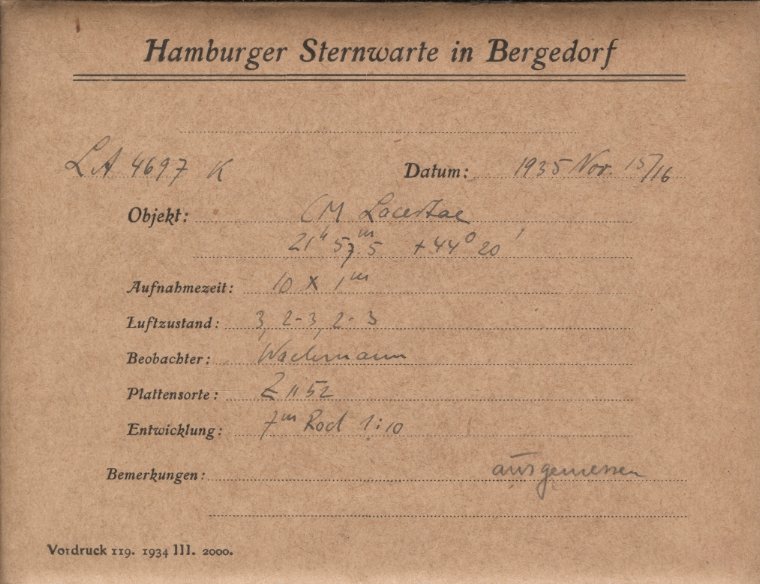 Hamburger Sternwarte in Bergedorf
LA 4697 K Datum: 1935 Nov. 15/16
Objekt: CM Lacertae
21ʰ 57ᵐ.5 +44° 20'
Aufnahmezeit: 10 x 1ᵐ
Luftzustand: 3, 2-3, 2-3
Beobachter: Wachmann
Plattensorte: Z 1152
Entwicklung: 7ᵐ Rod 1:10
Bemerkungen: ausgemessen
Vordruck 119. 1934 III. 2000.